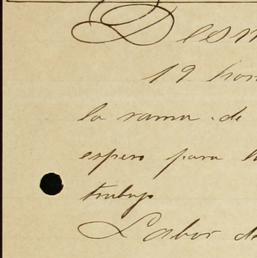 Desm
19 hom
la rama de
espero para l
trabajo
Labor d